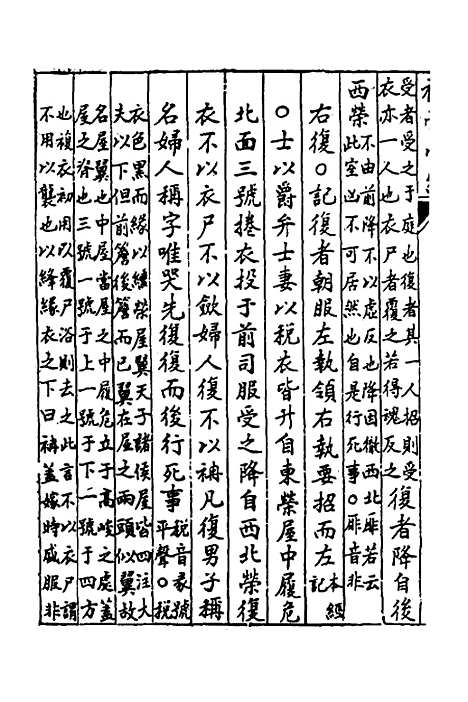 受者受之于庭也復者其一人招則受
衣亦一人也衣尸者覆之若得魂反之
復者降自後
西榮
不由前降不以虛反也降因徹西北厞若云
此室凶不可居然也自是行死事○厞音非
右復○記復者朝服左執領右執要招而左
本經
記
○士以爵弁士妻以稅衣皆升自東榮屋中履危
北面三號捲衣投于前司服受之降自西北榮復
衣不以衣尸不以斂婦人復不以袡凡復男子稱
名婦人稱字唯哭先復復而後行死事
稅音彖號
平聲○稅
衣色黑而緣以纁榮屋翼天子諸侯屋皆四注大
夫以下但前簷後簷而已翼在屋之兩頭似翼故
名屋翼也中屋當屋之中履危立于高峻之處蓋
屋之脊也三號一號于上一號于下一號于四方
也複衣初用以覆尸浴則去之此言不以衣尸謂
不用以襲也以絳緣衣之下曰袡蓋嫁時盛服非